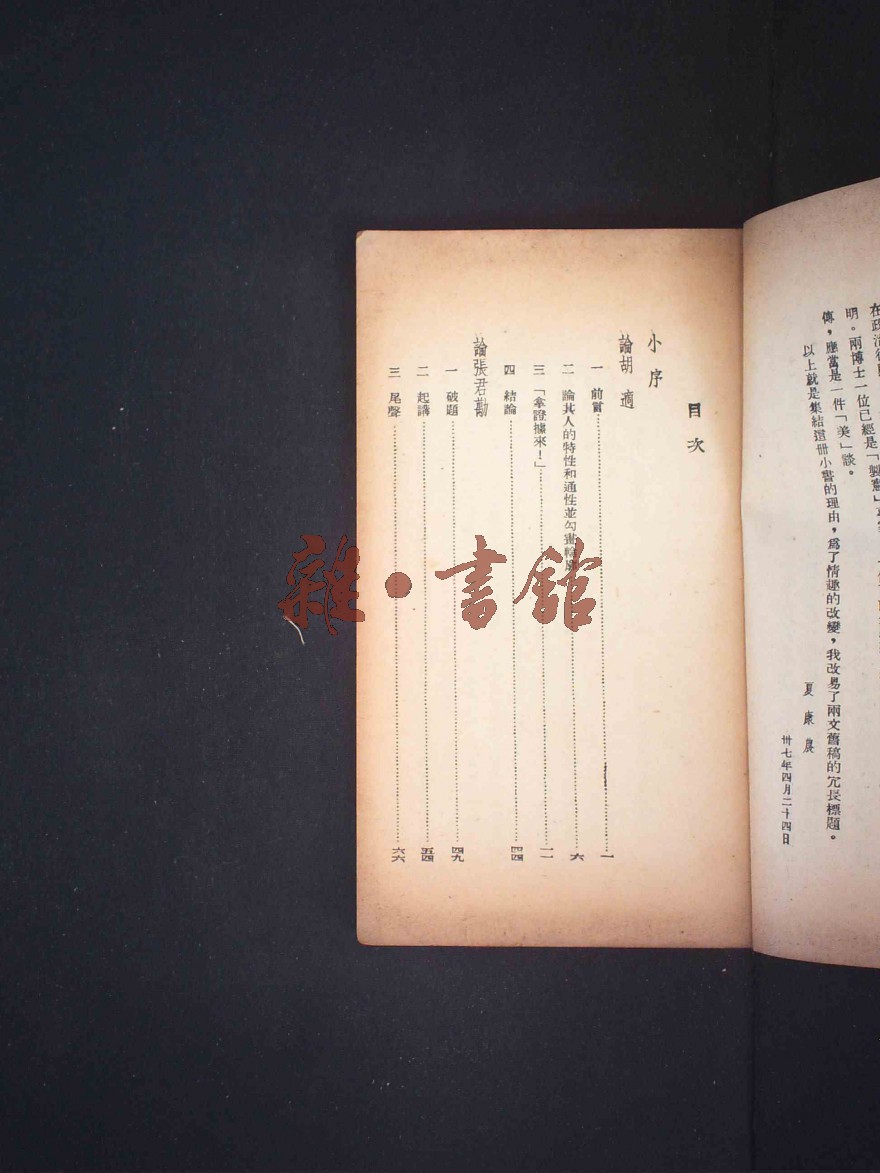 在政治
明。兩博士一位已經是「製憲」
傳，應當是一件「美」談。
以上就是集結這冊小書的理由，爲了情趣的改變，我改易了兩文舊稿的冗長標題。
夏康農
卅七年四月二十四日
目次
小序
論胡適
一 前言 一
二 論其人的特性和通性並勾畫輪廓 六
三 「拿證據來！」 一一
四 結論 四四
論張君勱
一 破題 四九
二 起講 五四
三 尾聲 六六
雜·書館